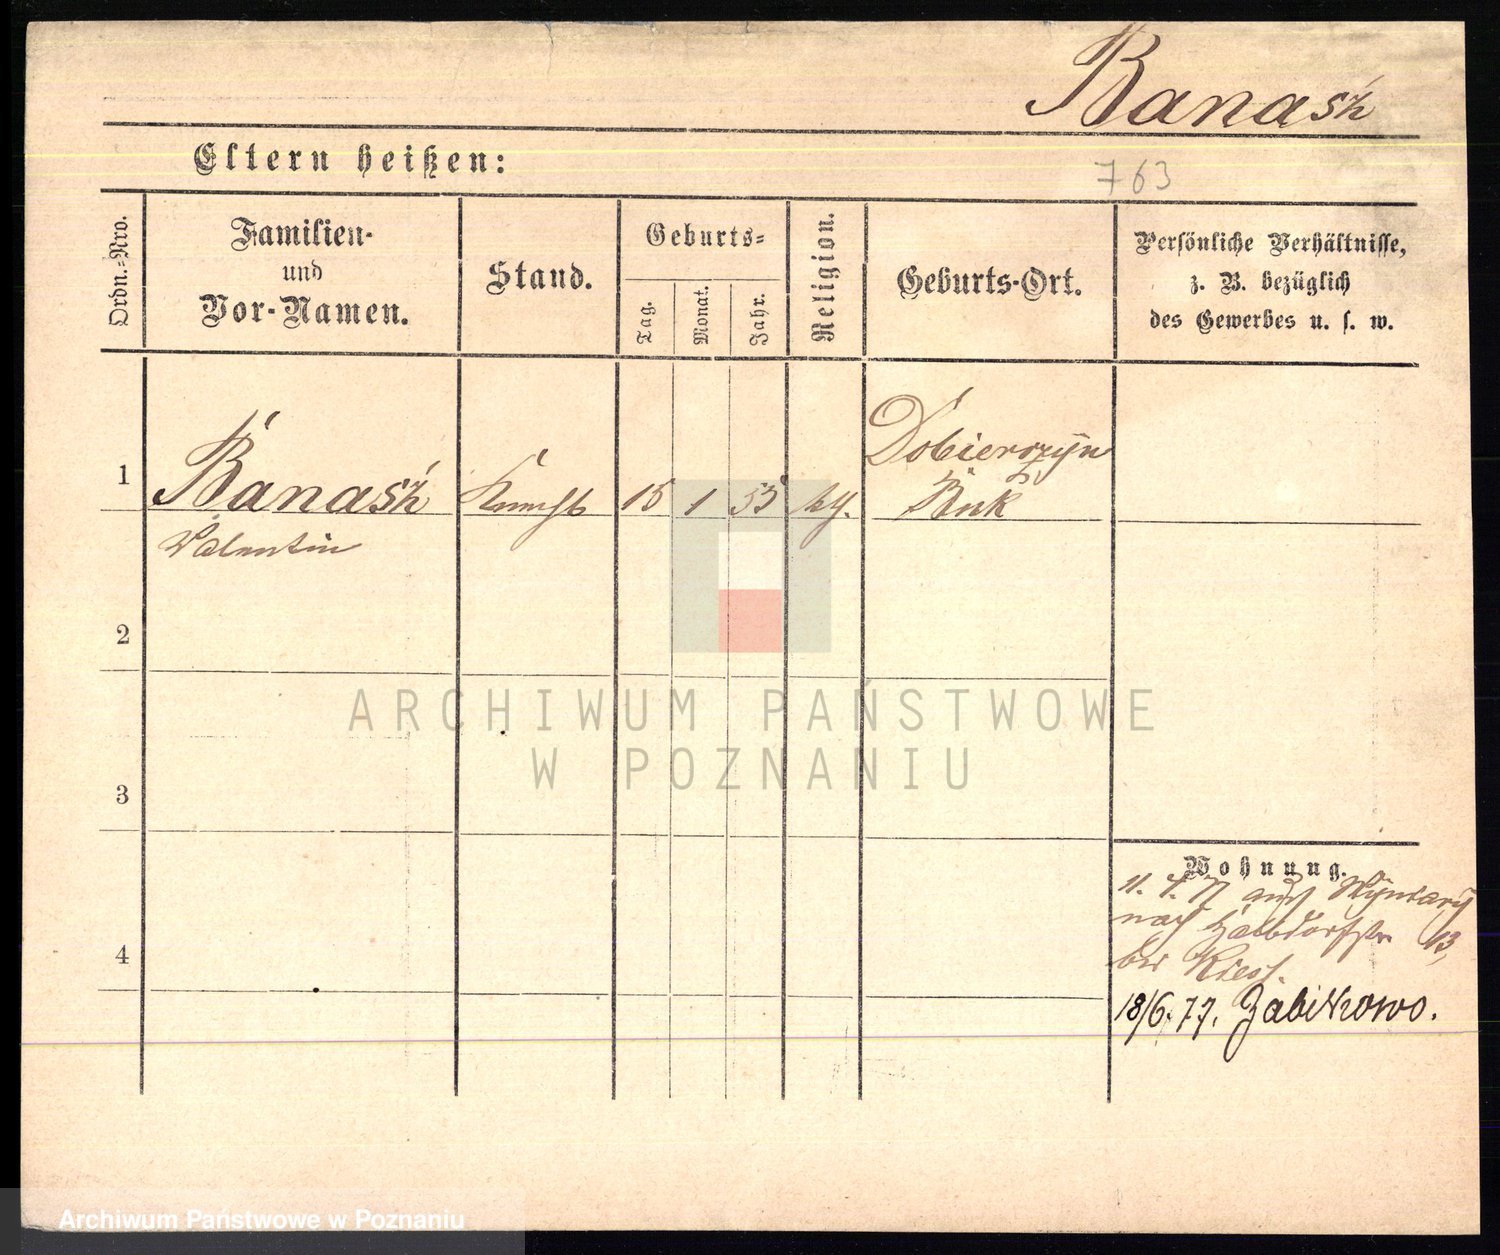 Banash
Eltern heißen:
763
Ordn.-Nro.
Familien-
und
Vor-Namen.
Stand.
Geburts-
Tag.
Monat.
Jahr.
Religion.
Geburts-Ort.
Persönliche Verhältnisse,
z. B. bezüglich
des Gewerbes u. s. w.
1
Banash
Valentin
Knecht
15
1
55
kth.
Dobierczyn
Buk
2
3
4
Wohnung.
11. 4. 77 aus
nach Halbdorfstr 13,
bei
18/6. 77. Zabikowo.
ARCHIWUM PAŃSTWOWE
W POZNANIU
Archiwum Państwowe w Poznaniu